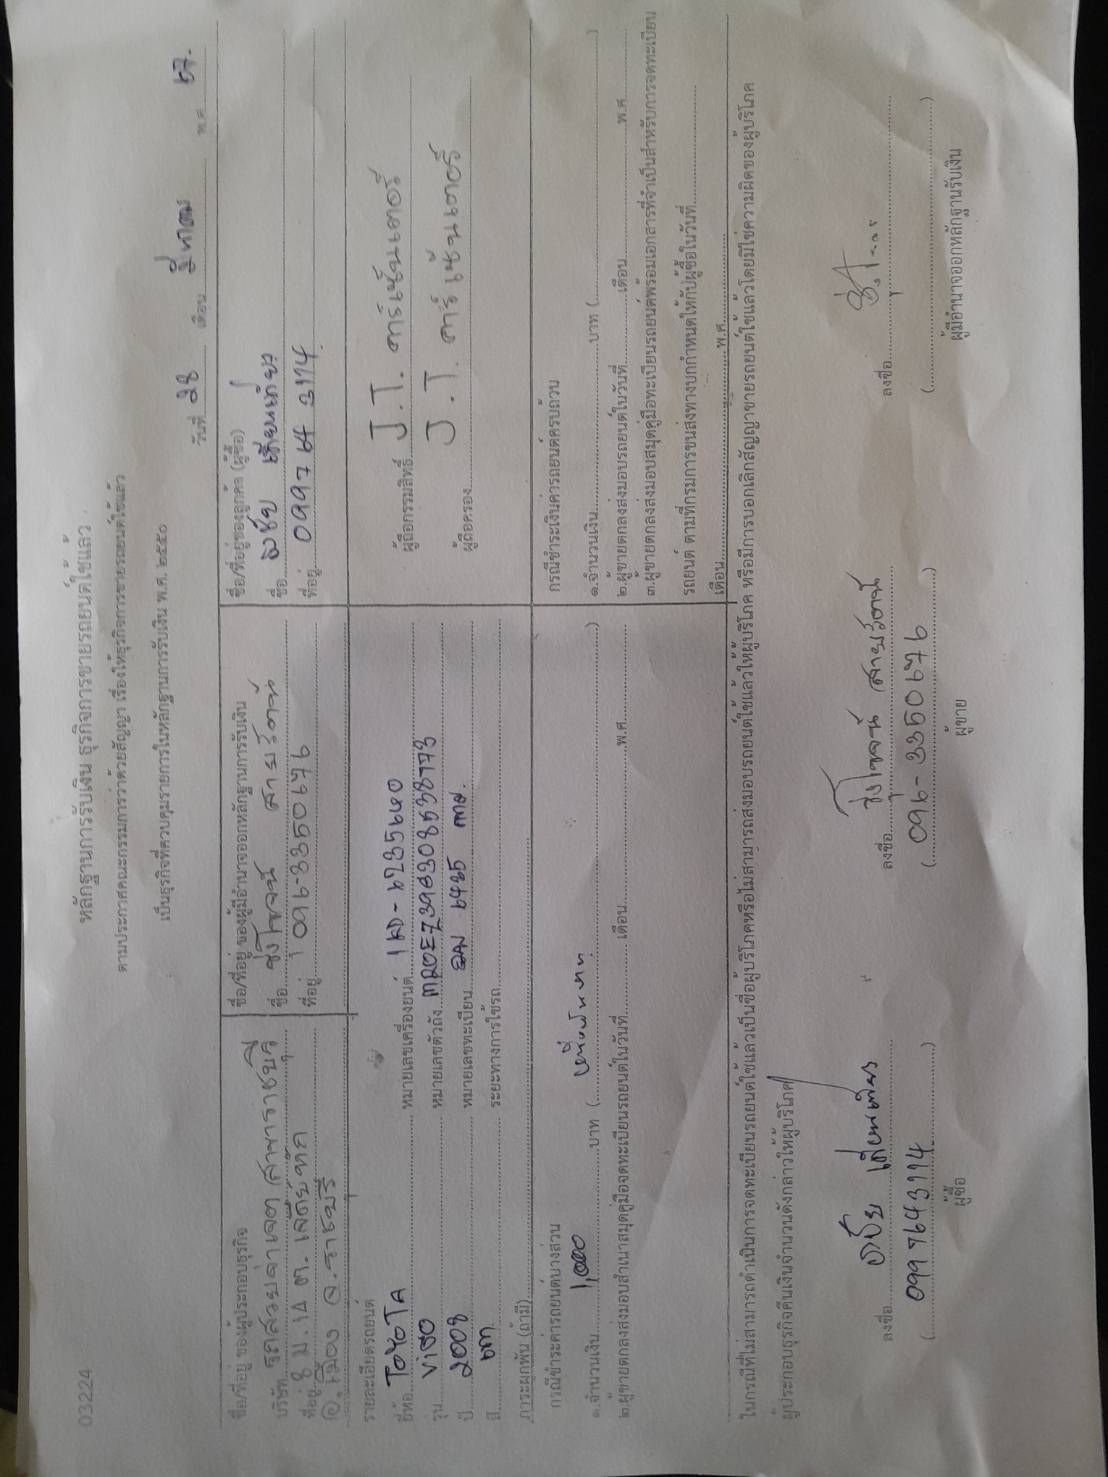 03224
หลักฐานการรับเงิน ธุรกิจการขายรถยนต์ใช้แล้ว
ตามประกาศคณะกรรมการว่าด้วยสัญญา เรื่องให้ธุรกิจการขายรถยนต์ใช้แล้ว
เป็นธุรกิจที่ควบคุมรายการในหลักฐานการรับเงิน พ.ศ. ๒๕๕๐
วันที่ 28 เดือน มีนาคม พ.ศ. 67.
ชื่อ/ที่อยู่ ของผู้ประกอบธุรกิจ
บริษัท รถสวยอำเภอ สาขาราชบุรี
ที่อยู่ 8 ม.14 ต. เจดีย์หัก
อ.เมือง จ.ราชบุรี
ชื่อ/ที่อยู่ ของผู้มีอำนาจออกหลักฐานการรับเงิน
ชื่อ รุ่งโรจน์
ที่อยู่ 096-3350676
ชื่อ/ที่อยู่ของลูกค้า (ผู้ซื้อ)
ชื่อ
ที่อยู่ 099764 3114
รายละเอียดรถยนต์
ยี่ห้อ TOYOTA หมายเลขเครื่องยนต์ 1KD-6235640 ผู้ถือกรรมสิทธิ์ J.T. คาร์เซ็นเตอร์
รุ่น VIGO หมายเลขตัวถัง ผู้ถือครอง J.T. คาร์เซ็นเตอร์
ปี 2008 หมายเลขทะเบียน 6485 กทม.
สี เทา ระยะทางการใช้รถ
ภาระผูกพัน (ถ้ามี)
กรณีชำระค่ารถยนต์บางส่วน
๑.จำนวนเงิน 1,000 บาท (หนึ่งพันบาท)
๒.ผู้ขายตกลงส่งมอบสำเนาสมุดคู่มือจดทะเบียนรถยนต์ในวันที่ เดือน พ.ศ.
กรณีชำระเงินค่ารถยนต์ครบถ้วน
๑.จำนวนเงิน บาท ( )
๒.ผู้ขายตกลงส่งมอบรถยนต์ในวันที่ เดือน พ.ศ.
๓.ผู้ขายตกลงส่งมอบสมุดคู่มือทะเบียนรถยนต์พร้อมเอกสารที่จำเป็นสำหรับการจดทะเบียน
รถยนต์ ตามที่กรมการขนส่งทางบกกำหนดให้กับผู้ซื้อในวันที่
เดือน พ.ศ.
ในกรณีที่ไม่สามารถดำเนินการจดทะเบียนรถยนต์ใช้แล้วเป็นชื่อผู้บริโภคหรือไม่สามารถส่งมอบรถยนต์ใช้แล้วให้ผู้บริโภค หรือมีการบอกเลิกสัญญาขายรถยนต์ใช้แล้วโดยมิใช่ความผิดของผู้บริโภค
ผู้ประกอบธุรกิจคืนเงินจำนวนดังกล่าวให้ผู้บริโภค
ลงชื่อ
(0997643114)
ผู้ซื้อ
ลงชื่อ รุ่งโรจน์
(096-3350676)
ผู้ขาย
ลงชื่อ
( )
ผู้มีอำนาจออกหลักฐานรับเงิน